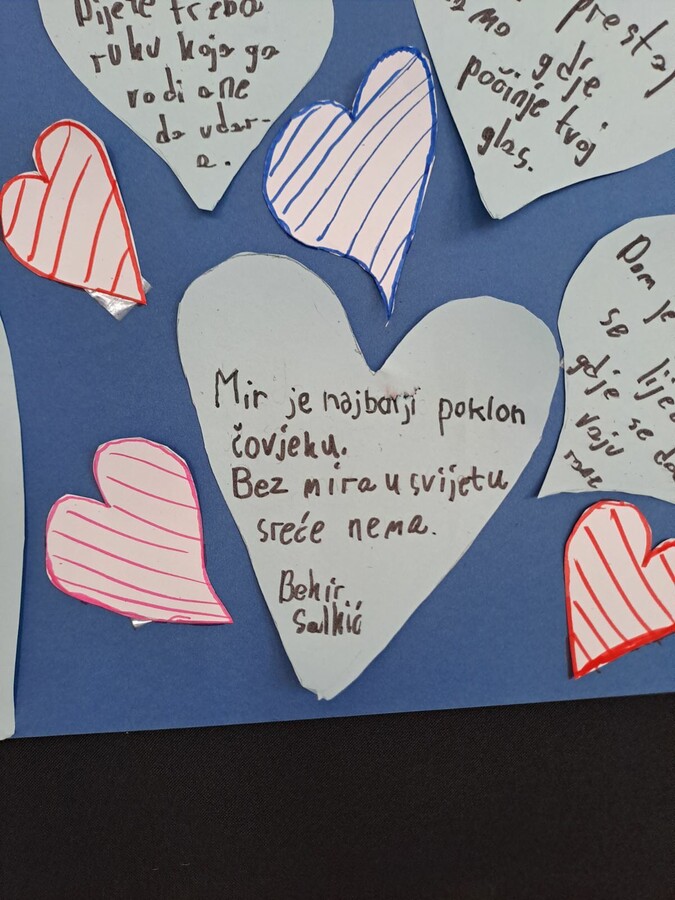 Dijete treba
ruku koja ga
vodi a ne
da udar-
a.
prestaj
gdje
počinje tvoj
glas.
Mir je najbolji poklon
čovjeku.
Bez mira u svijetu
sreće nema.
Behir
Salkić
Dom je
se liječ
gdje se da
vaju
rane